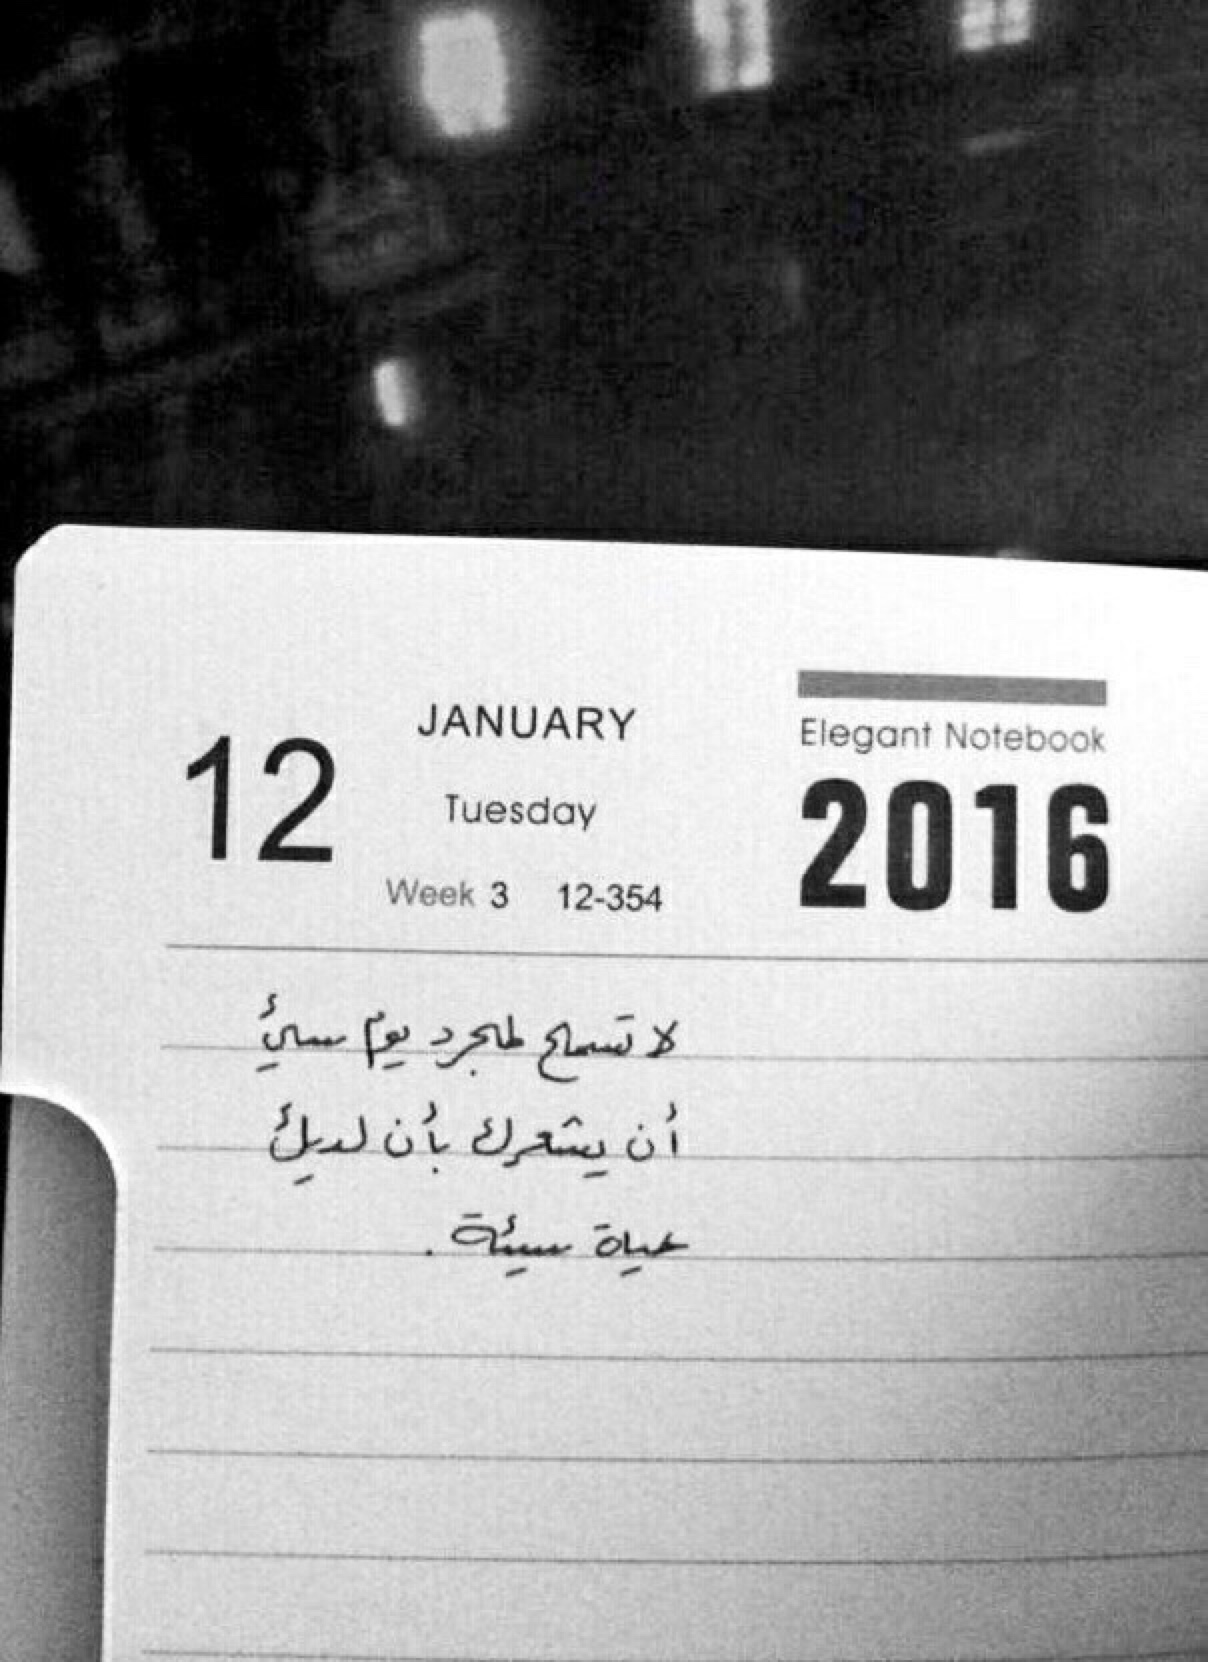 12
JANUARY
Tuesday
Week 3 12-354
Elegant Notebook
2016
لا تسمح لمجرد يوم سيئ
أن يشعرك بأن لديك
حياة سيئة .